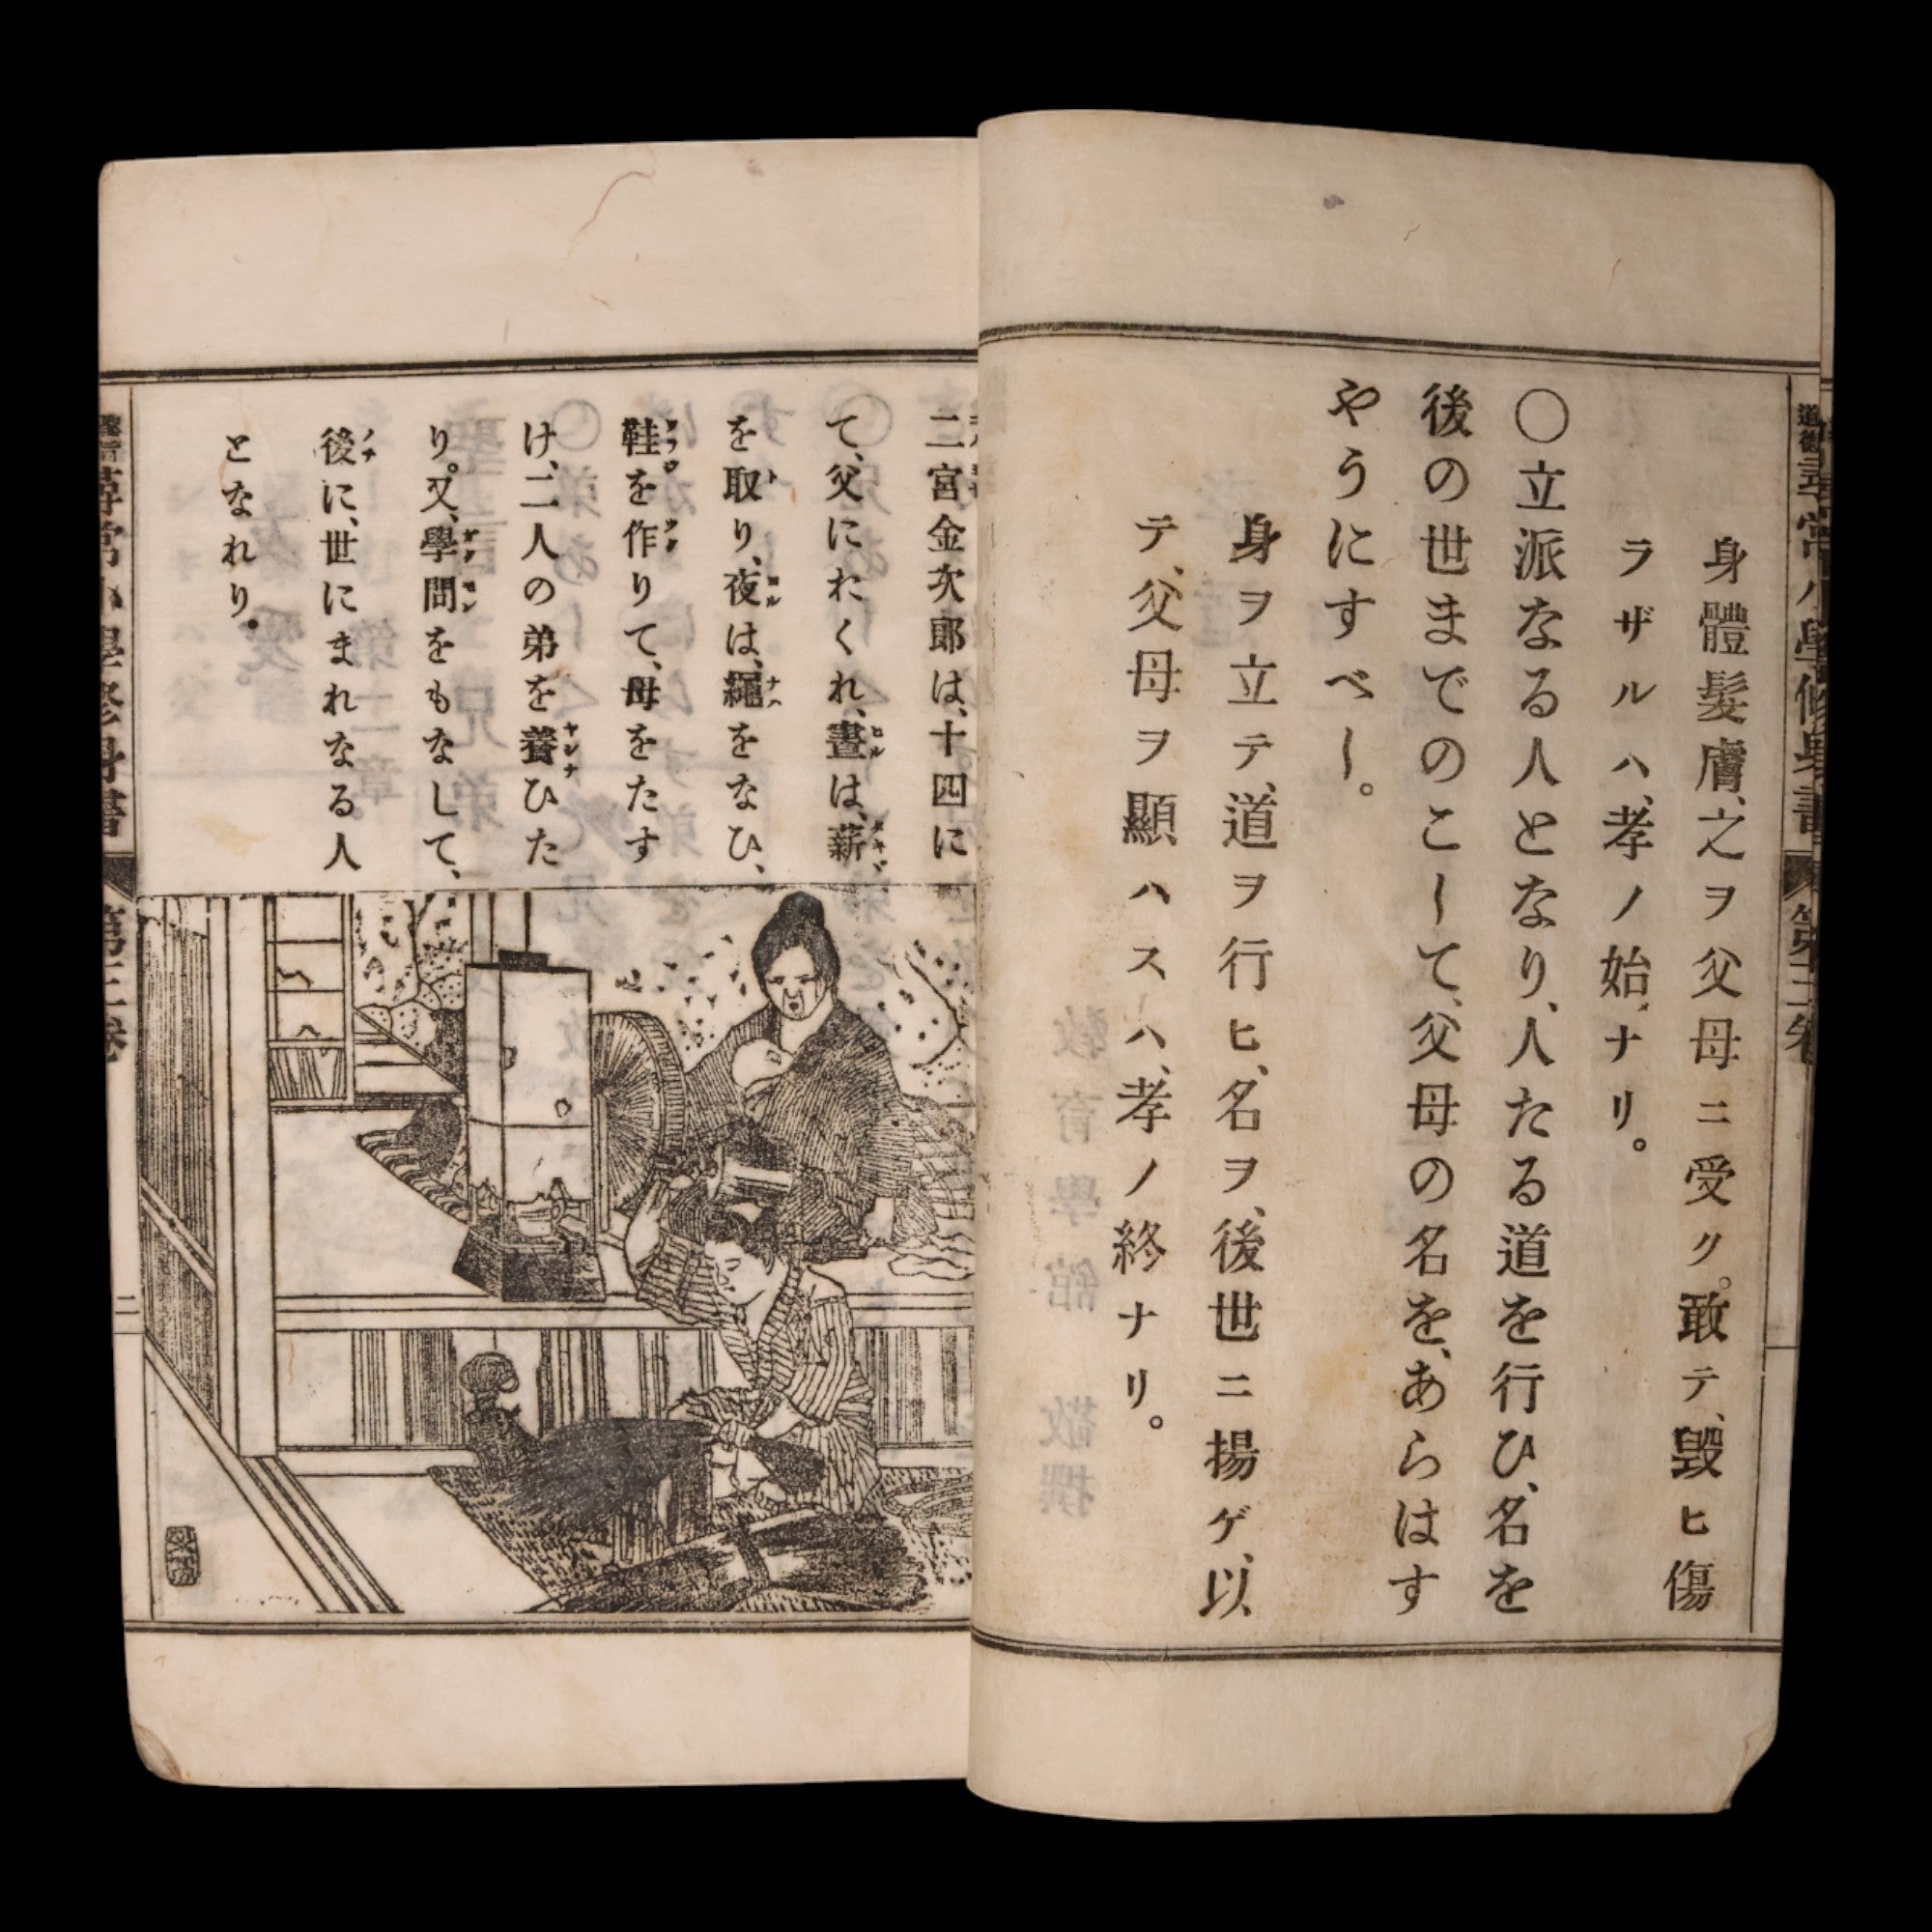 身體髮膚、之ヲ父母ニ受ク。敢テ、毀ヒ傷
ラザルハ、孝ノ始ナリ。
〇立派なる人となり、人たる道を行ひ、名を
後の世までのこして、父母の名を、あらはす
やうにすべし。
身ヲ立テ、道ヲ行ヒ、名ヲ、後世ニ揚ゲ、以
テ、父母ヲ顯ハスハ、孝ノ終ナリ。
二宮金次郎は、十四に
て、父にわくれ、晝は、薪
を取り、夜は、繩をなひ、
鞋を作りて、母をたす
け、二人の弟を養ひた
り。又、學問をもなして、
後に、世にまれなる人
となれり。
尋常小學修身書
第三卷
二